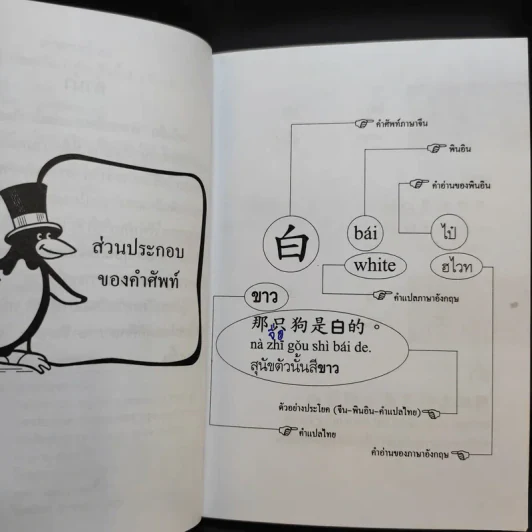 ส่วนประกอบ
ของคำศัพท์
คำศัพท์ภาษาจีน
พินอิน
คำอ่านของพินอิน
白
bái
ไป๋
white
ฮไวท
คำแปลภาษาอังกฤษ
ขาว
那只狗是白的。
จื่อ
nà zhī gǒu shì bái de.
สุนัขตัวนั้นสีขาว
ตัวอย่างประโยค (จีน-พินอิน-คำแปลไทย)
คำแปลไทย
คำอ่านของภาษาอังกฤษ